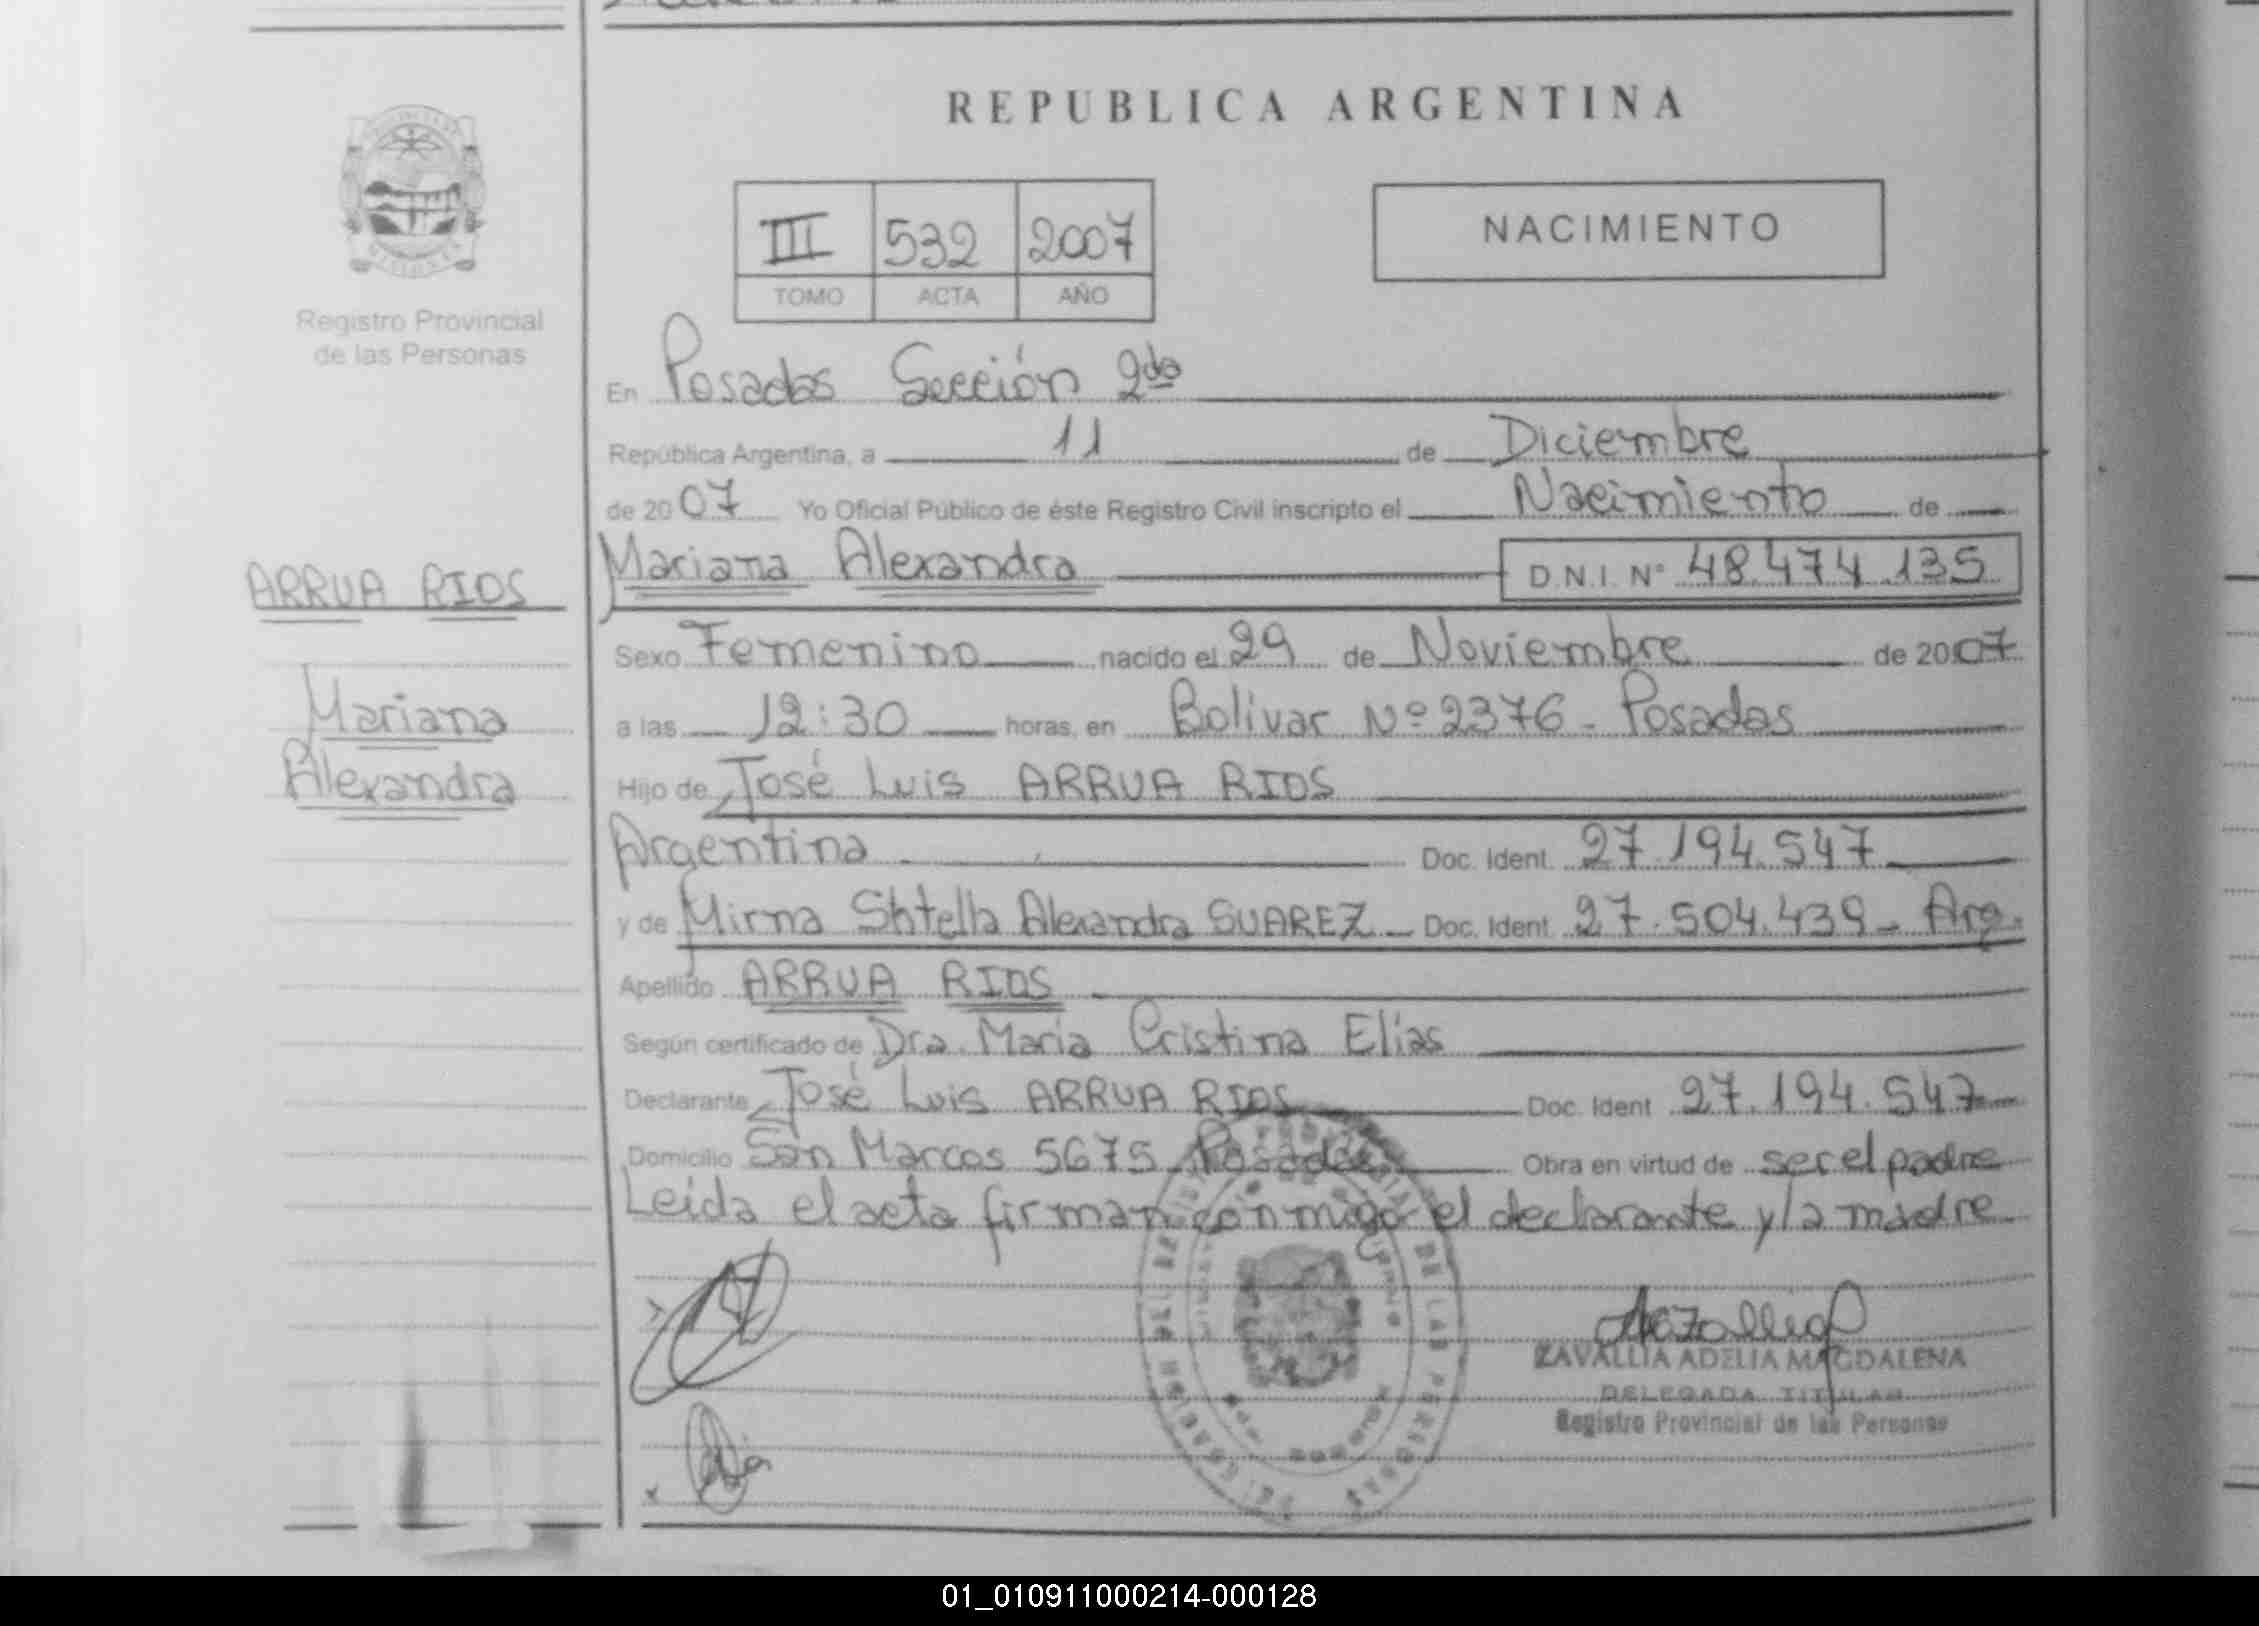 REPUBLICA ARGENTINA
III 532 2007
TOMO ACTA AÑO
NACIMIENTO
Registro Provincial
de las Personas
En Posadas Sección 2da
República Argentina, a 11 de Diciembre
de 2007 Yo Oficial Público de éste Registro Civil inscripto el Nacimiento de
ARRUA RIOS
Mariana
Alexandra
Mariana Alexandra D.N.I. Nº 48.474.135
Sexo Femenino nacido el 29 de Noviembre de 2007
a las 12:30 horas, en Bolivar Nº 2376 - Posadas
Hijo de José Luis ARRUA RIOS
Argentina Doc. Ident. 27.194.547
y de Mirna Shtella Alexandra SUAREZ - Doc. Ident. 27.504.439 - Arg.
Apellido ARRUA RIOS
Según certificado de Dra. María Cristina Elías
Declarante José Luis ARRUA RIOS Doc. Ident 27.194.547
Domicilio San Marcos 5675 Posadas Obra en virtud de ser el padre
Leida el acta firman conmigo el declarante y la madre
ZAVALLIA ADELIA MAGDALENA
DELEGADA TITULAR
Registro Provincial de las Personas
01_010911000214-000128